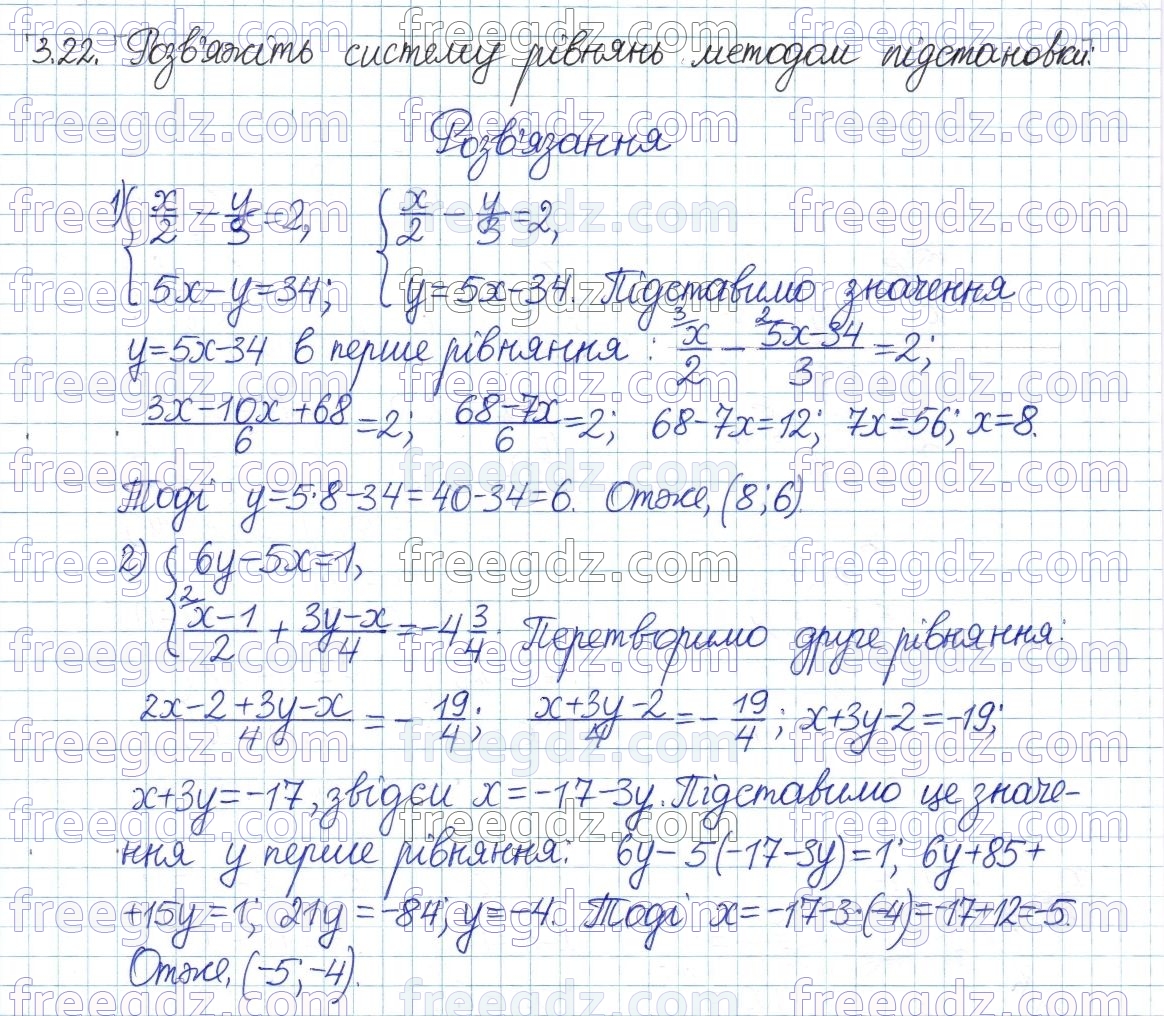 3.22. Розв'яжіть систему рівнянь методом підстановки:
Розв'язання
1) { x/2 − y/3 = 2, { x/2 − y/3 = 2,
5x − y = 34; y = 5x − 34. Підставимо значення
y = 5x − 34 в перше рівняння: ³x/2 − ²5x − 34/3 = 2;
3x − 10x + 68/6 = 2; 68 − 7x/6 = 2; 68 − 7x = 12; 7x = 56; x = 8.
Тоді y = 5·8 − 34 = 40 − 34 = 6. Отже, (8; 6).
2) { 6y − 5x = 1,
²x − 1/2 + 3y − x/4 = −4 3/4. Перетворимо друге рівняння:
2x − 2 + 3y − x/4 = − 19/4; x + 3y − 2/4 = − 19/4; x + 3y − 2 = −19;
x + 3y = −17, звідси x = −17 − 3y. Підставимо це значе-
ння у перше рівняння: 6y − 5(−17 − 3y) = 1; 6y + 85 +
+ 15y = 1; 21y = −84; y = −4. Тоді x = −17 − 3·(−4) = −17 + 12 = −5.
Отже, (−5; −4).
freegdz.com